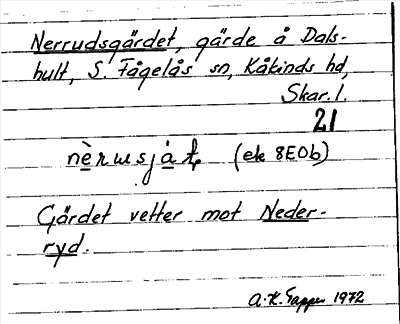 Nerrudsgärdet, gärde å Dals-
hult, S. Fågelås sn, Kåkinds hd,
Skar. l.
21
(ek 8E0b)
Gärdet vetter mot Neder-
ryd.
A.-K. 1972